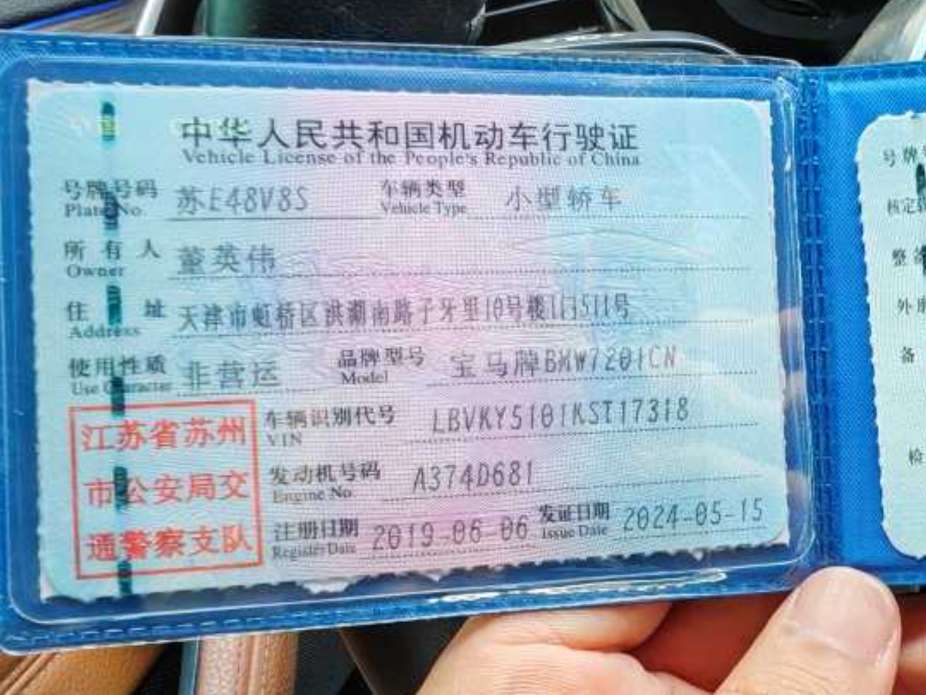 中华人民共和国机动车行驶证
Vehicle License of the People's Republic of China
号牌号码 苏E48V8S 车辆类型 小型轿车
Plate No. Vehicle Type
所有人 董英伟
Owner
住址 天津市虹桥区洪湖南路子牙里10号楼1门511号
Address
使用性质 非营运 品牌型号 宝马牌BMW7201CN
Use Character Model
江苏省苏州
市公安局交
通警察支队
车辆识别代号 LBVKY5101KST17318
VIN
发动机号码 A374D681
Engine No.
注册日期 2019-06-06 发证日期 2024-05-15
Register Date Issue Date
号牌
核定
整备
外
备
检